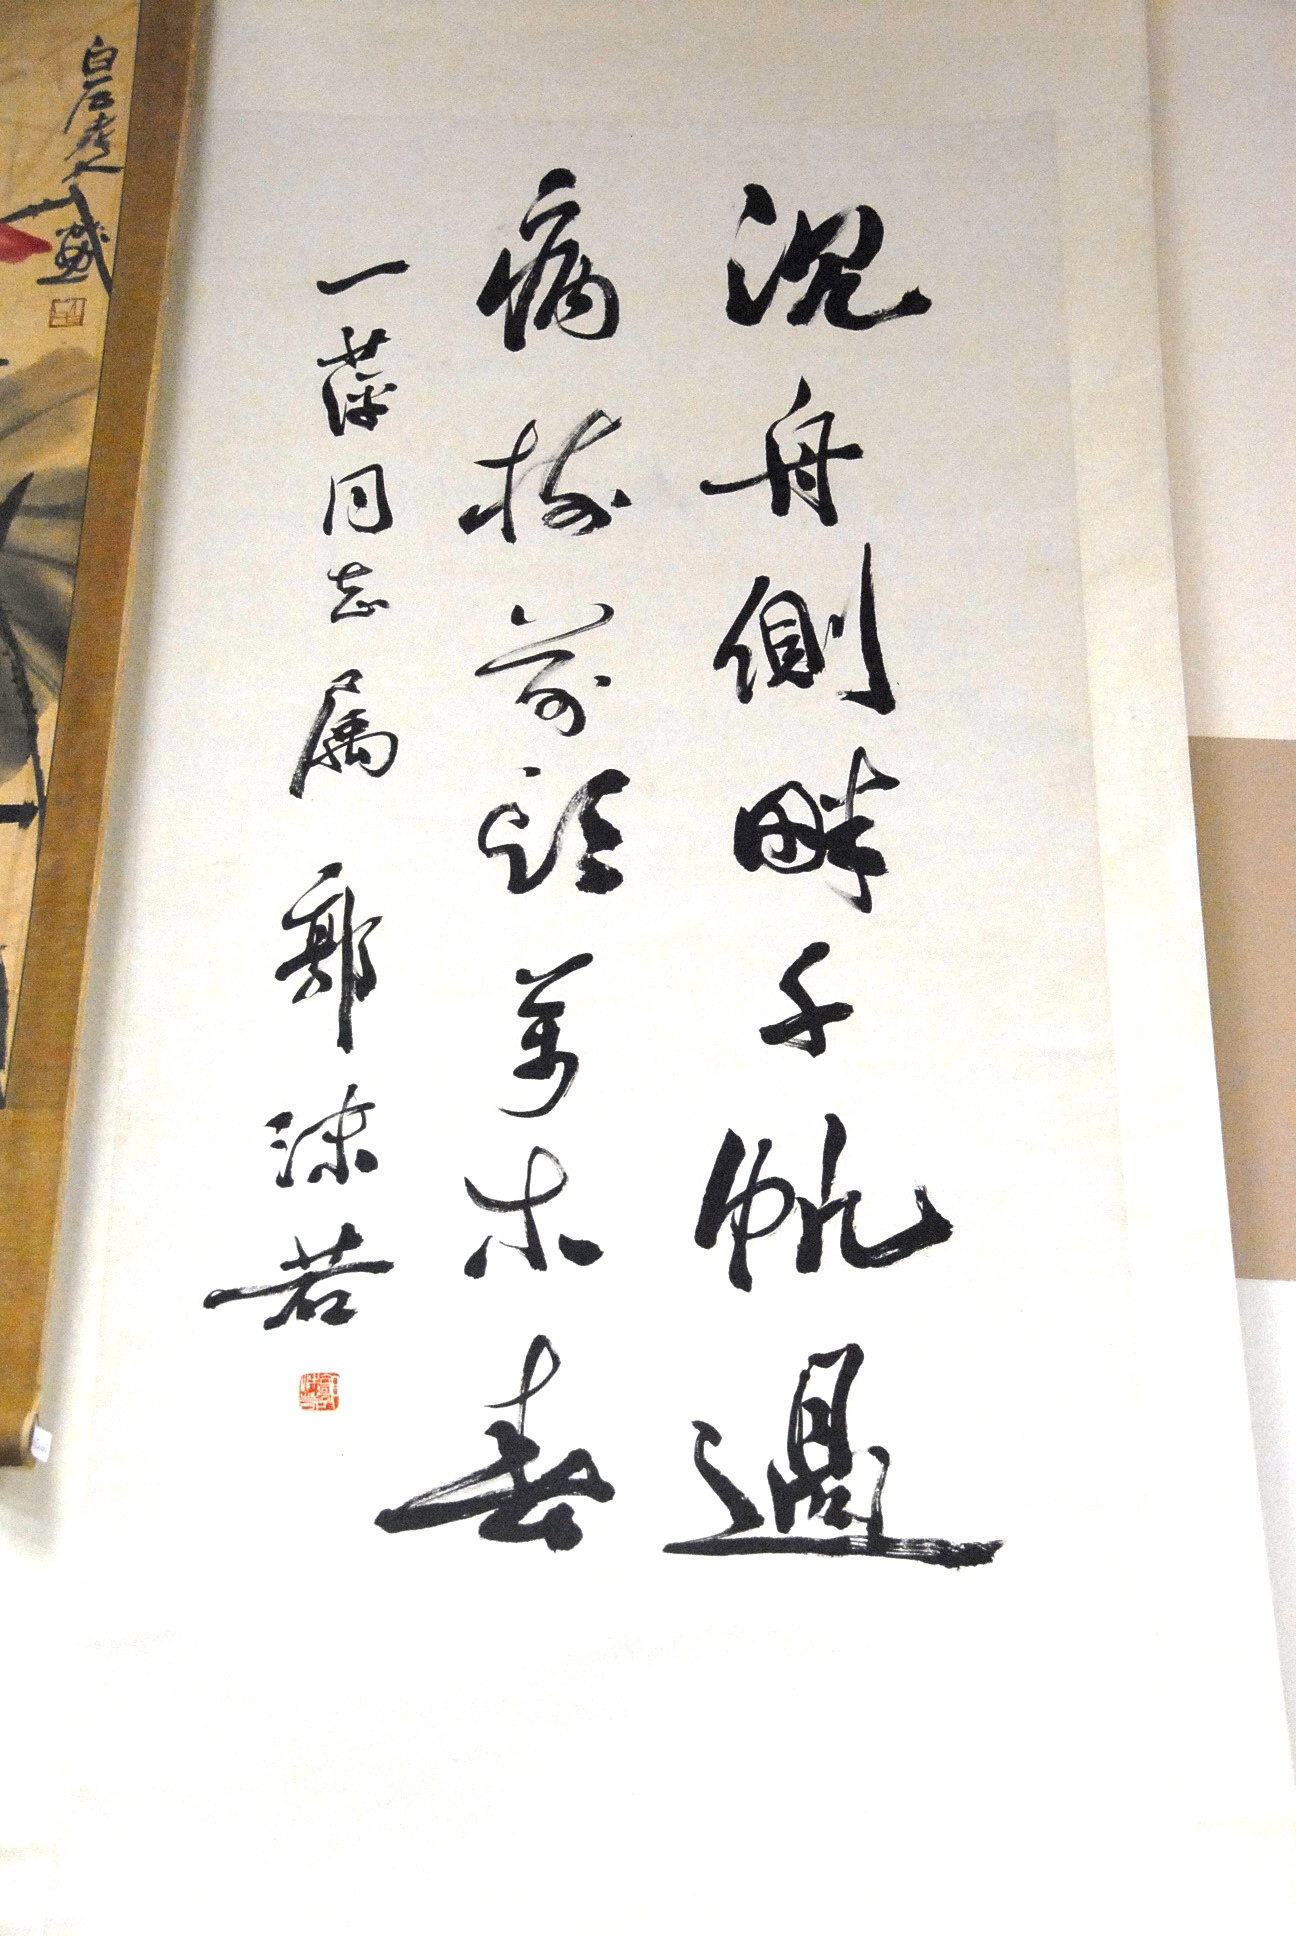 沉舟側畔千帆過
病樹前頭萬木春
一萍同志属 郭沫若
白石老人畫